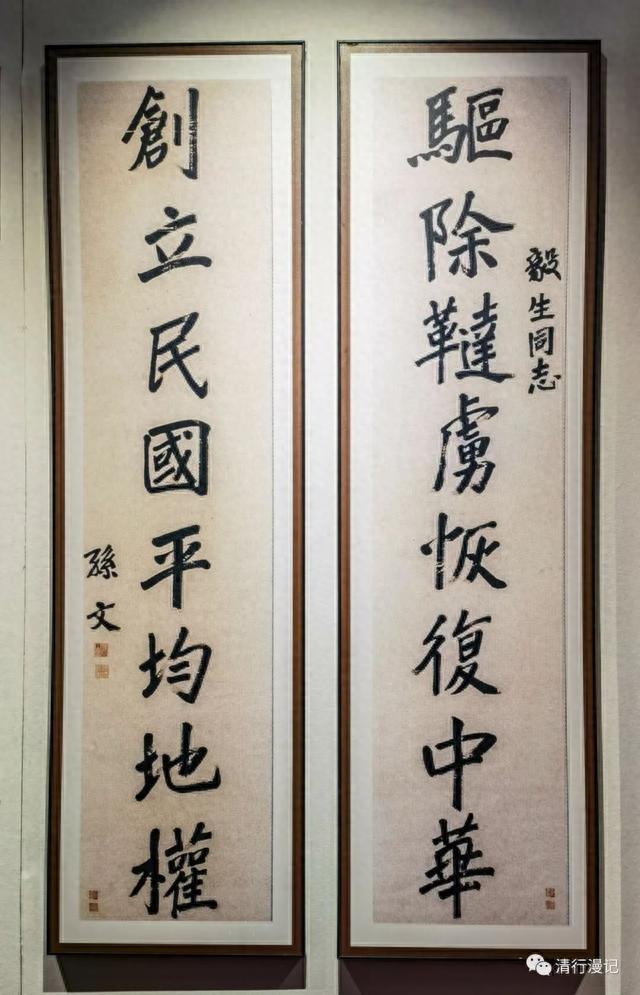 毅生同志
驅除韃虜恢復中華
創立民國平均地權
孫文
清行漫记